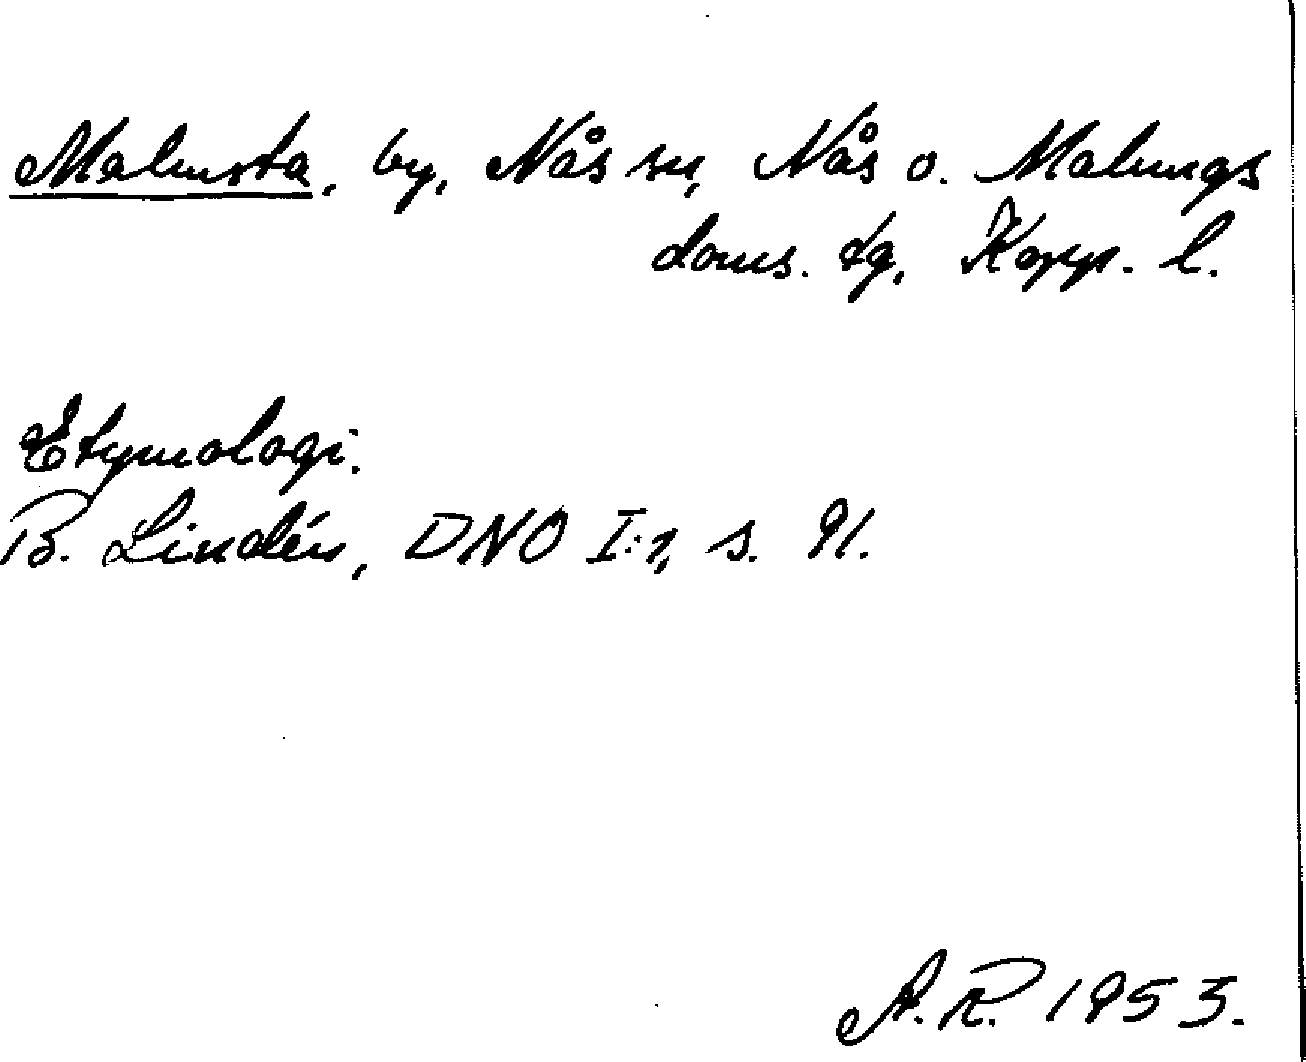 Malmsta, by, Nås sn, Nås o. Malungs
doms. tg, Kopp. l.
Etymologi.
B. Lindén, DNO I:1, s. 91.
A.R. 1953.